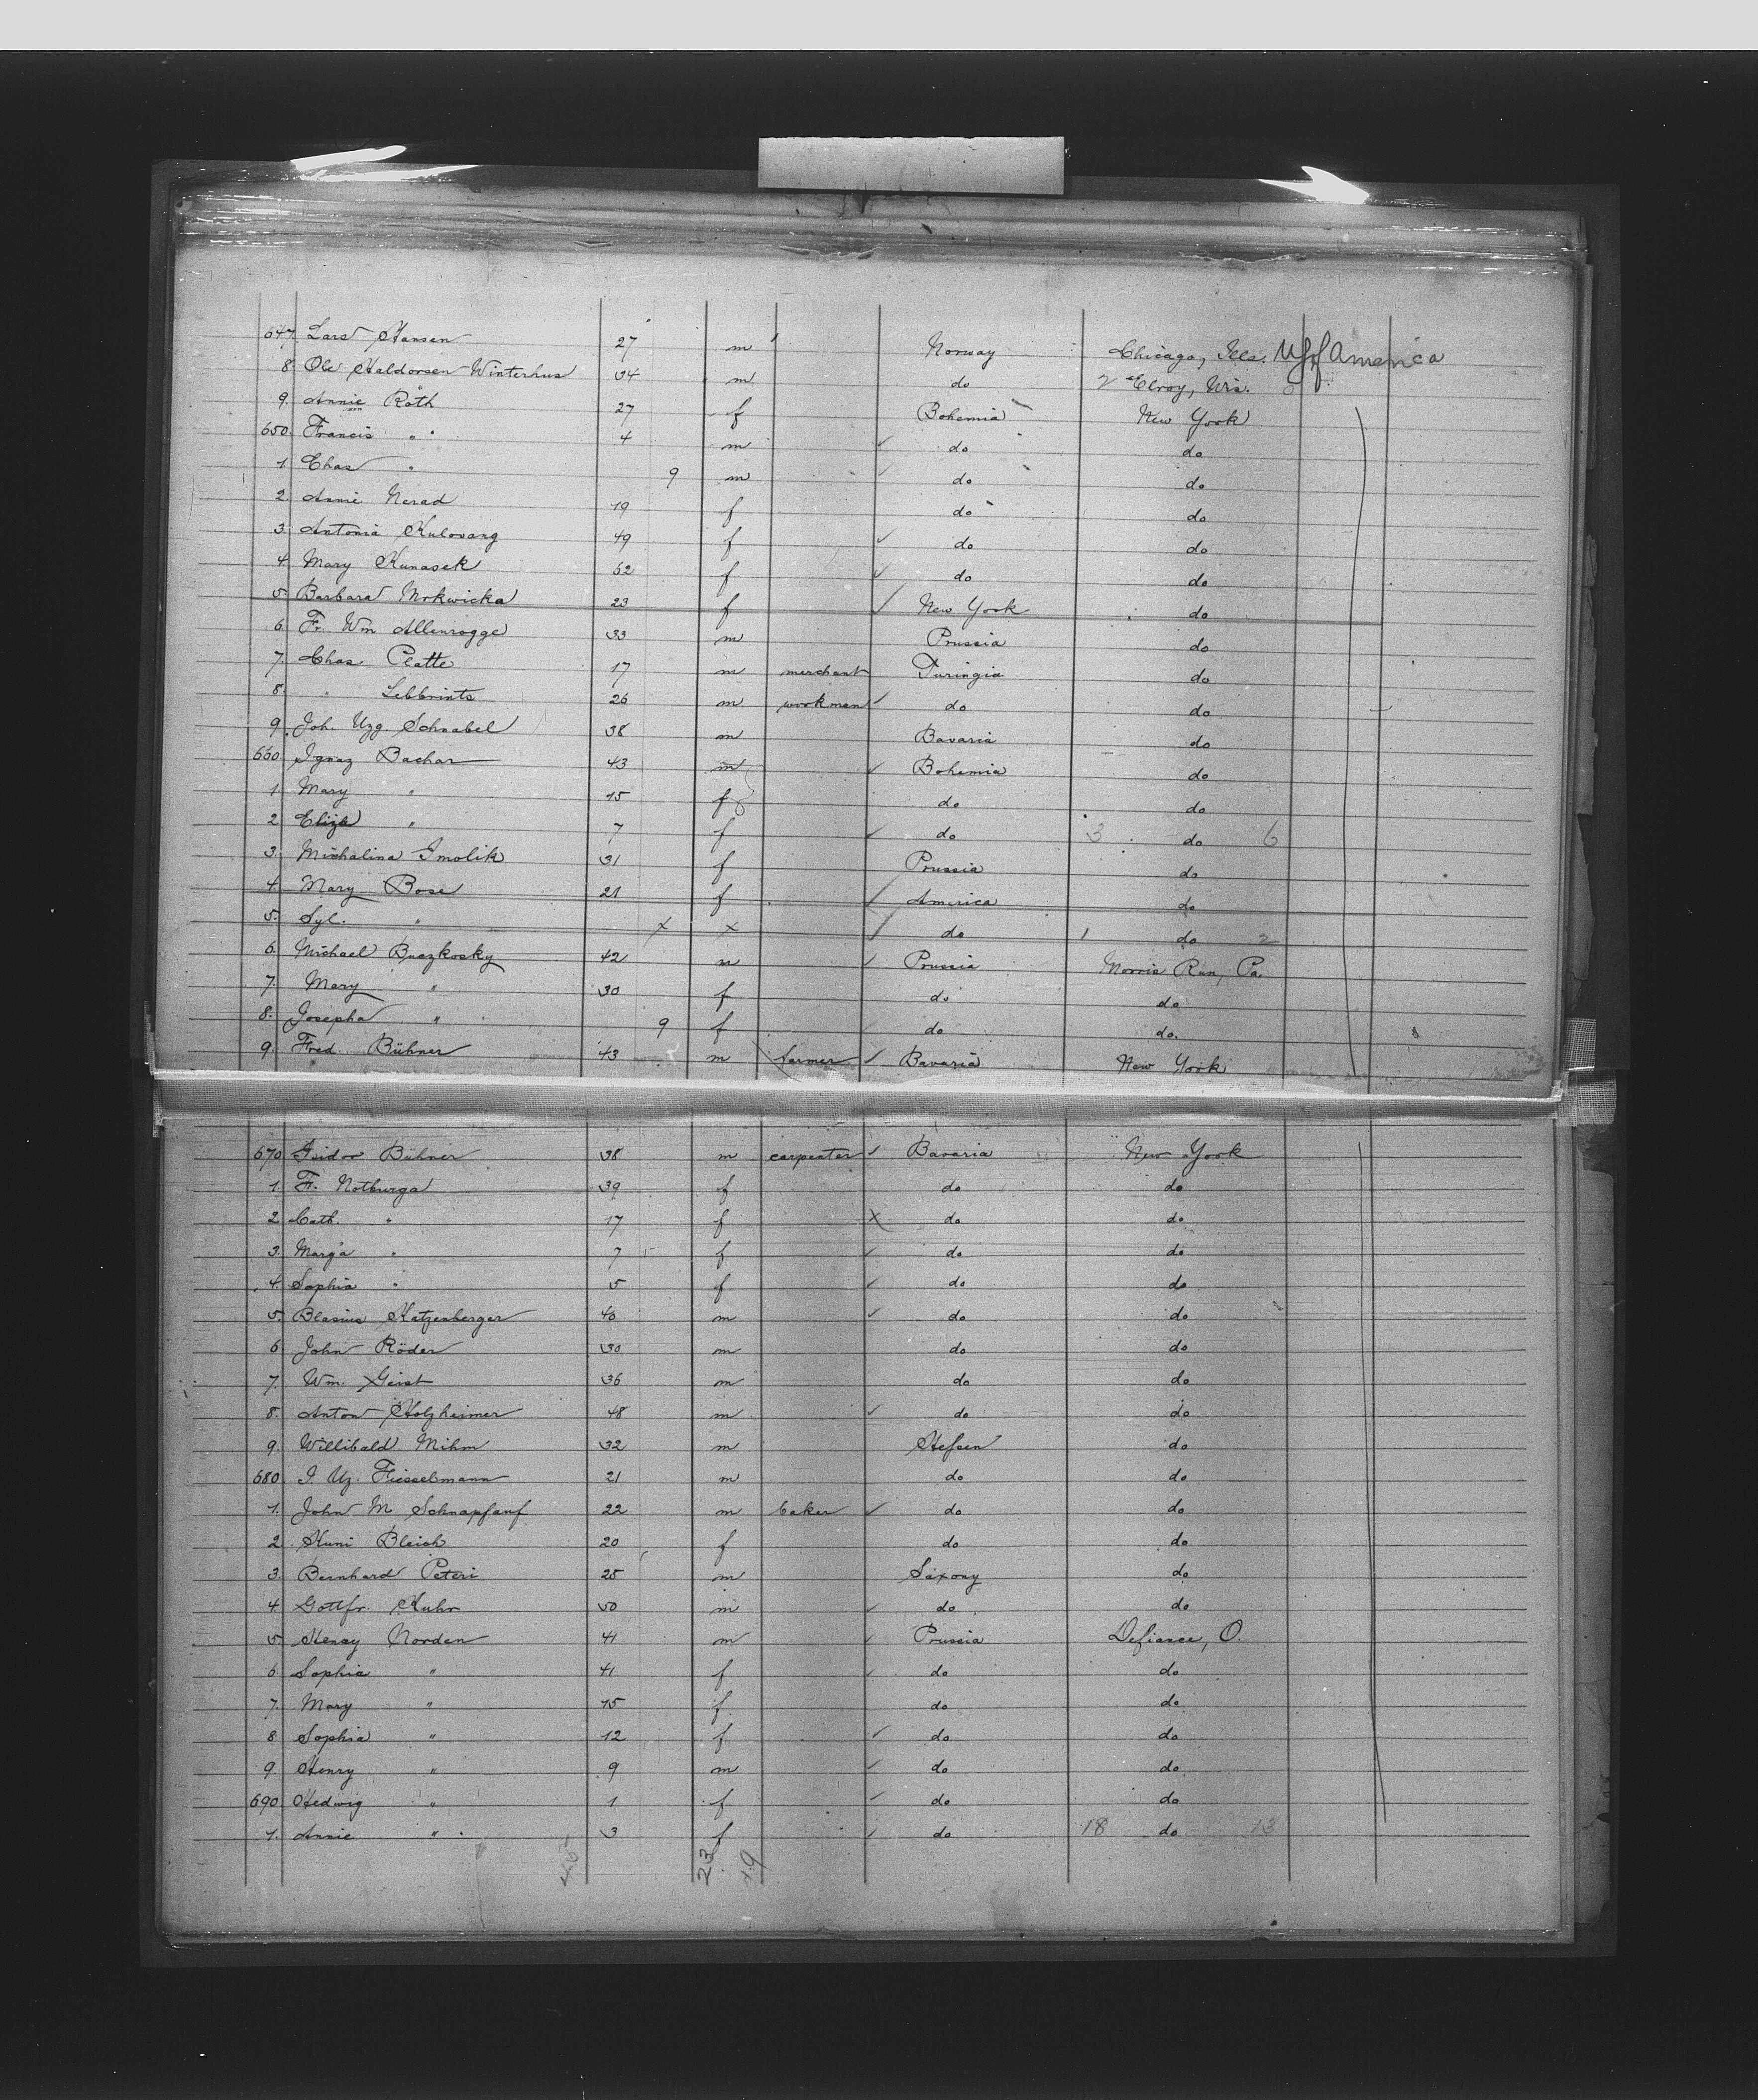 647. Lars Hansen 27 m Norway Chicago, Ills. US of America
8. Ole Haldorsen Winterhus 34 m do 2 Elroy, Wis. 0
9. Annie Roth 27 f Bohemia New York
650. Francis " 4 m ✓ do do
1. Chas " 9 m ✓ do do
2. Annie Nerad 19 f do do
3. Antonia Kulovang 49 f ✓ do do
4. Mary Kunasek 62 f ✓ do do
5. Barbara Mrkwicka 23 f ✓ New York do
6. Fr. Wm Allenrogge 33 m Prussia do
7. Chas Platte 17 m merchant Turingia do
8. " Lebbrints 26 m workman ✓ do do
9. Joh. Uzg. Schnabel 38 m Bavaria do
660. Ignaz Bachar 43 m ✓ Bohemia do
1. Mary " 15 f do do
2. Eliza " 7 f ✓ do 3 do 6
3. Michalina Smolik 31 f Prussia do
4. Mary Bose 21 f ✓ America do
5. Syl. " x x ✓ do 1 do 2
6. Michael Buczkosky 42 m ✓ Prussia Morris Run, Pa.
7. Mary " 30 f do do
8. Josepha " 9 f do do.
9. Fred. Bühner 43 m farmer ✓ Bavaria New York
670 Isidor Bühner 38 m carpenter ✓ Bavaria New York
1. F. Notburga 39 f do do
2. Cath. " 17 f X do do
3. Marg'a " 7 f ✓ do do
4. Sophia " 5 f ✓ do do
5. Blasius Katzenberger 40 m ✓ do do
6. John Röder 30 m do do
7. Wm. Geist 36 m do do
8. Anton Holzheimer 48 m ✓ do do
9. Willibald Mihm 32 m Hessen do
680. J. Uz. Fiesselmann 21 m do do
1. John M Schnapfauf 22 m baker ✓ do do
2. Kuni Bleich 20 f do do
3. Bernhard Peteri 25 m Saxony do
4. Gottfr. Kuhr 50 m ✓ do do
5. Henry Norden 41 m ✓ Prussia Defiance, O.
6. Sophia " 41 f ✓ do do
7. Mary " 15 f do do
8. Sophia " 12 f ✓ do do
9. Henry " 9 m ✓ do do
690 Hedwig " 1 f ✓ do do
1. Annie " 3 f ✓ do 18 do 13
23 19